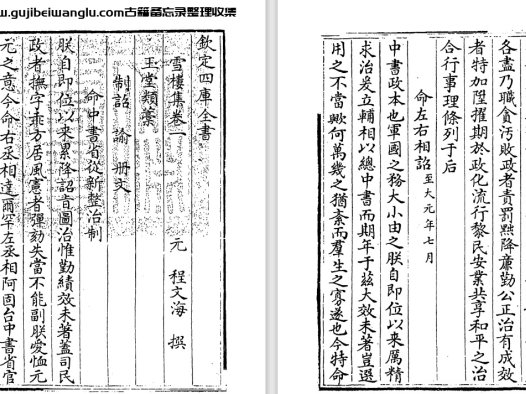 w.gujibeiwanglu.com古籍备忘录整理收集
欽定四庫全書
雪樓集卷一 元 程文海 撰
玉堂類藁
制詔 諭 册文
命中書省從新整治制
朕自即位以來累降詔旨圖治惟勤績效未著蓋司民
政者撫字乖方居風憲者彈劾失當不能副朕愛恤元
元之意今命右丞相達爾罕左丞相阿固台中書省官
各盡乃職貪汚敗政者責罰黜降亷勤公正治有成效
者特加陞擢期於政化流行黎民安業共享和平之治
合行事理條列于后
命左右相詔至大元年七月
中書政本也軍國之務大小由之朕自即位以來厲精
求治爰立輔相以總中書而期年于兹大效未著豈選
用之不當歟何萬幾之猶紊而羣生之寡遂也今特命